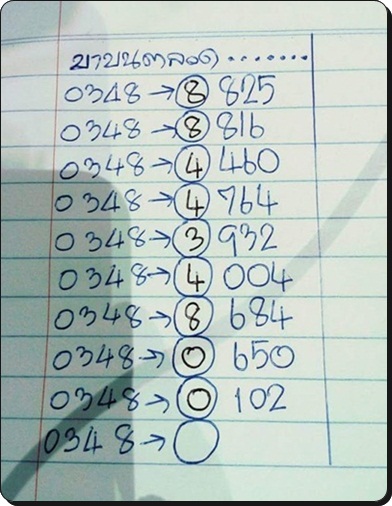 มาบนตลอด ........
0348 → 8 825
0348 → 8 816
0348 → 4 460
0348 → 4 764
0348 → 3 932
0348 → 4 004
0348 → 8 684
0348 → 0 650
0348 → 0 102
0348 →